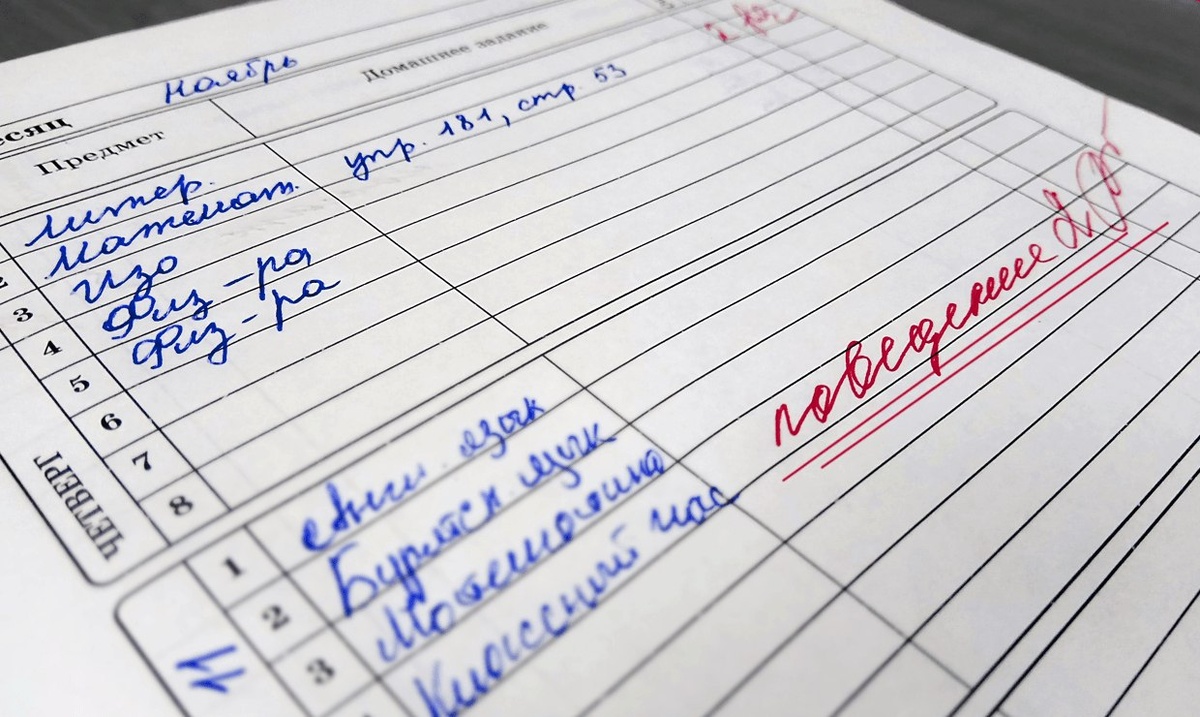 есяц ноябрь
Предмет Домашнее задание
Литер.
2 Математ. упр. 181, стр. 53
3 Изо
4 Физ-ра
5 Физ-ра
6
7
8
ЧЕТВЕРГ
поведение 2
1 Англ. язык
2 Бурятск. язык
3 Математика
Классный час
11